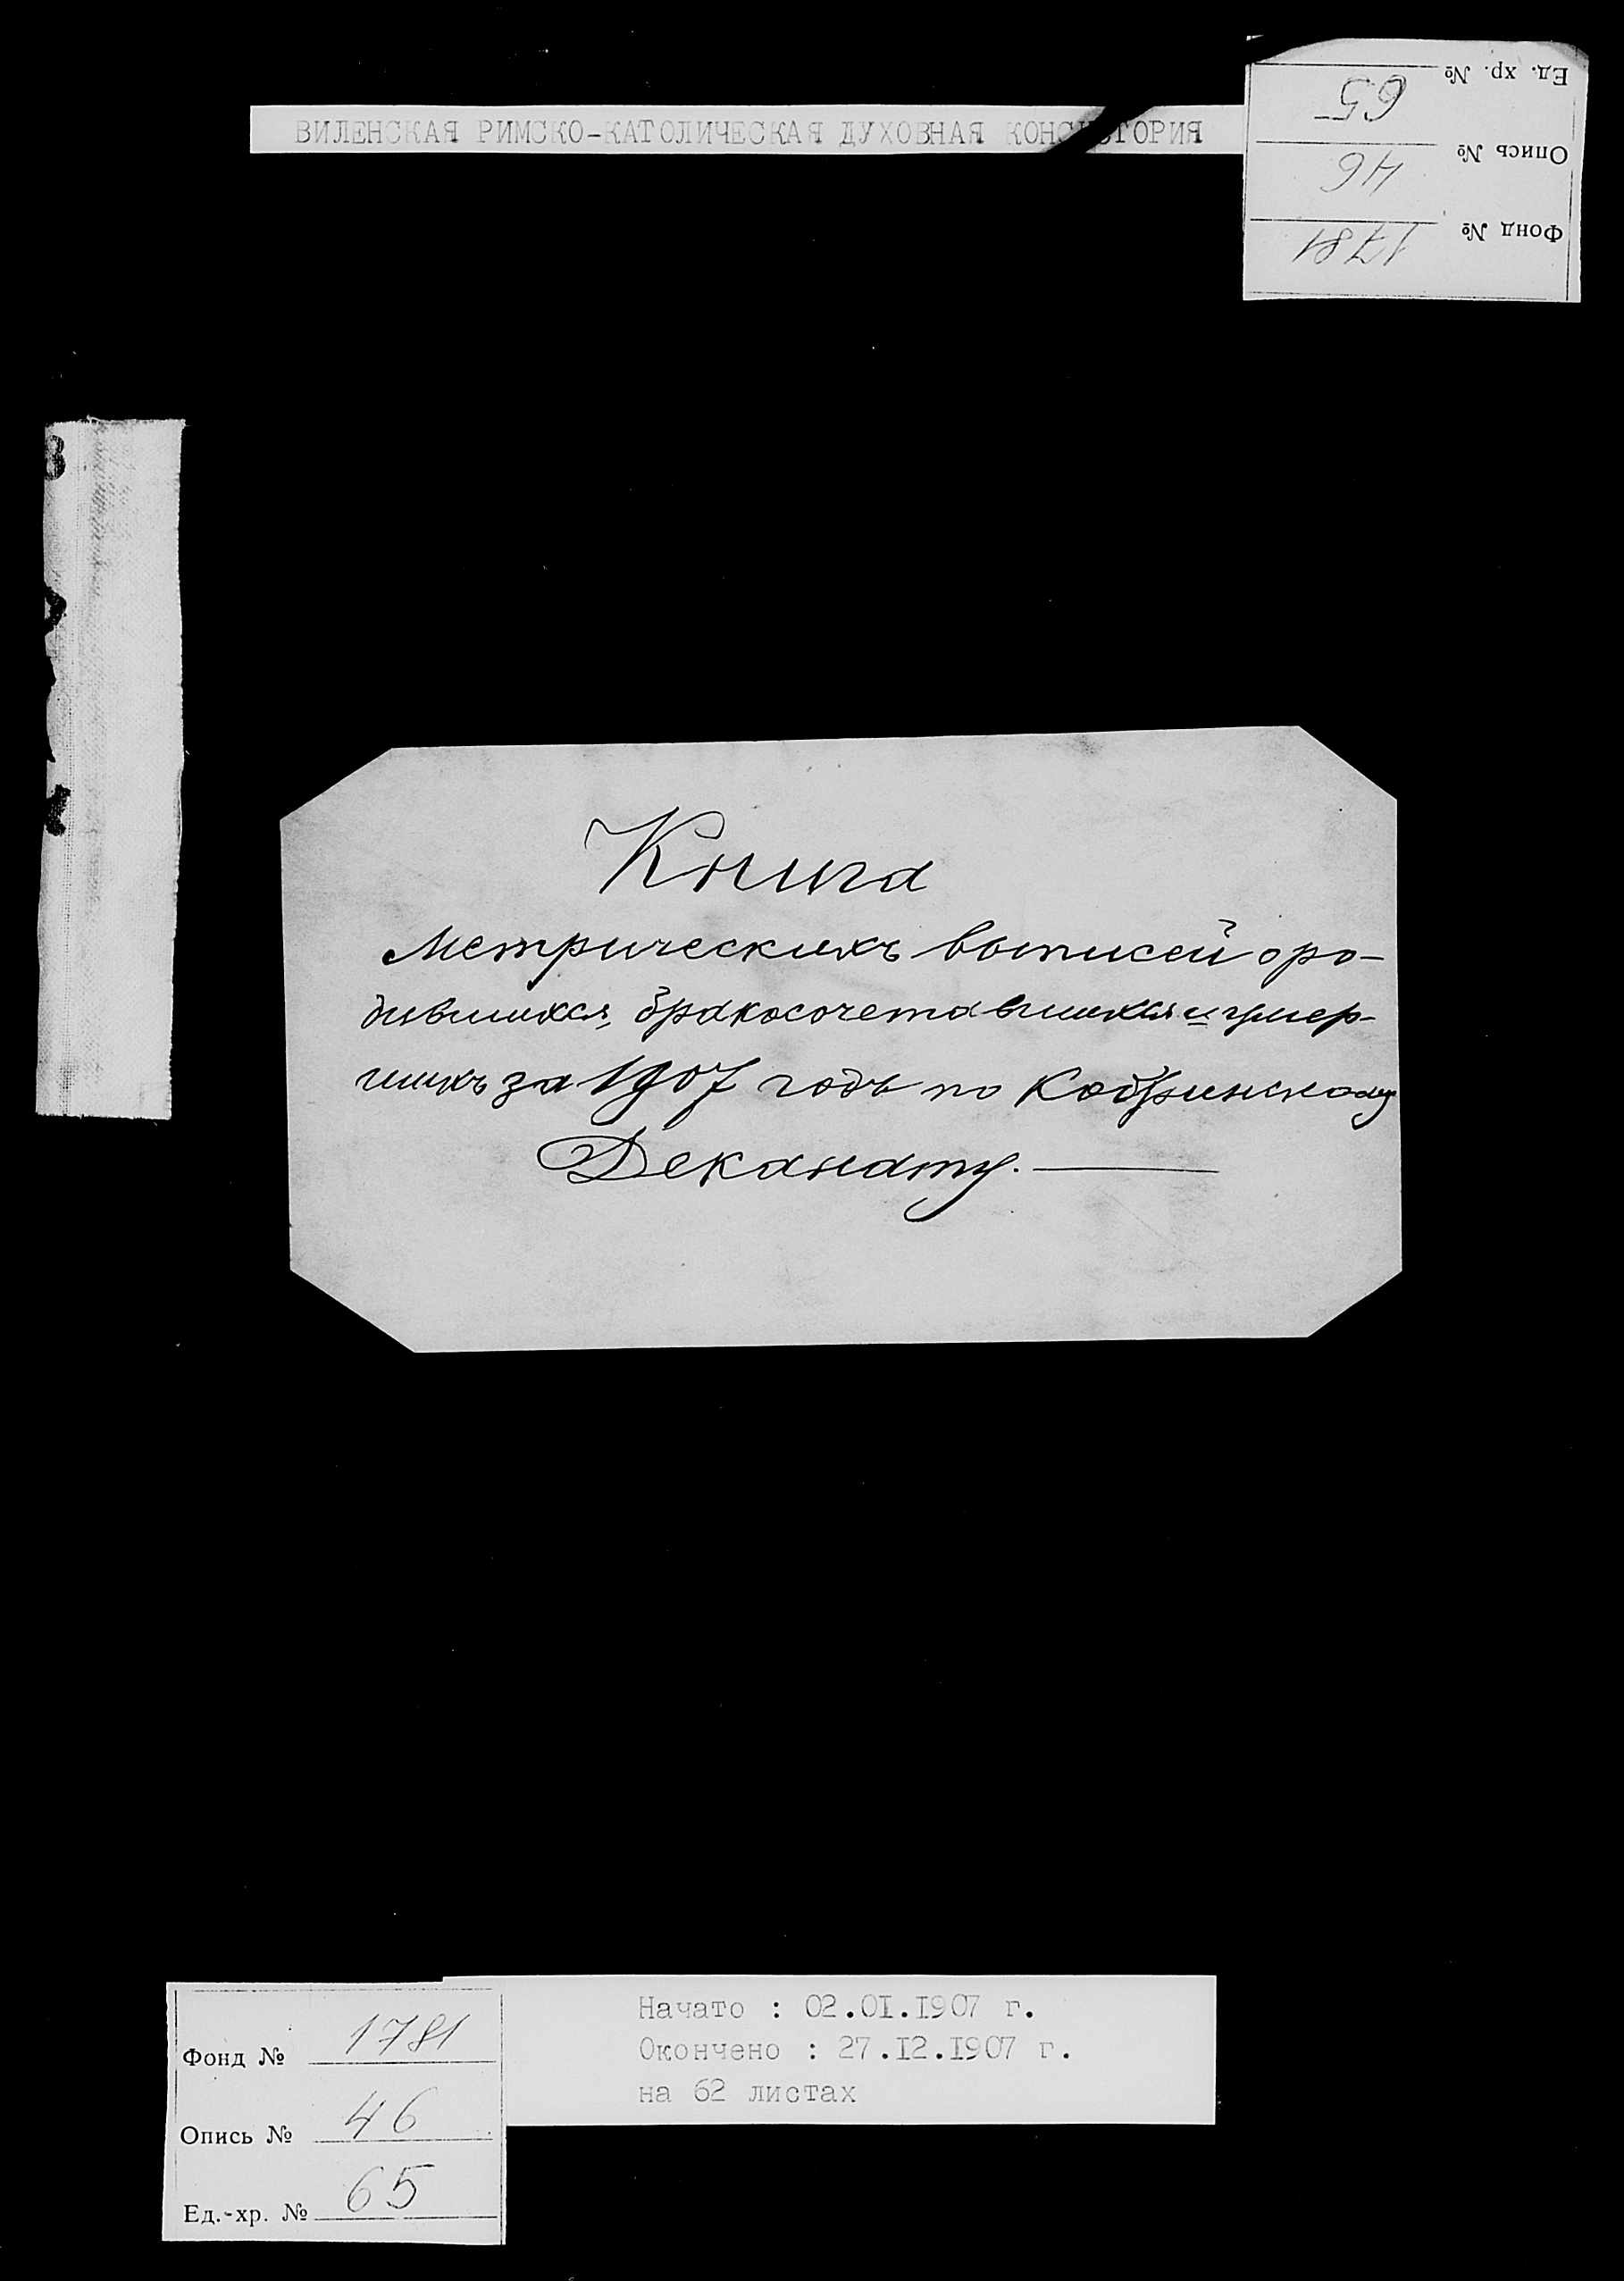 ВИЛЕНСКАЯ РИМСКО-КАТОЛИЧЕСКАЯ ДУХОВНАЯ КОНСИСТОРИЯ
Ед. хр. № 65
Опись № 46
Фонд № 1781
Книга
Метрическихъ выписей о ро-
дившихся, бракосочетавшихся и умер-
шихъ за 1907 годъ по Кобринскому
Деканату.
Начато : 02.01.1907 г.
Окончено : 27.12.1907 г.
на 62 листах
Фонд № 1781
Опись № 46
Ед.-хр. № 65